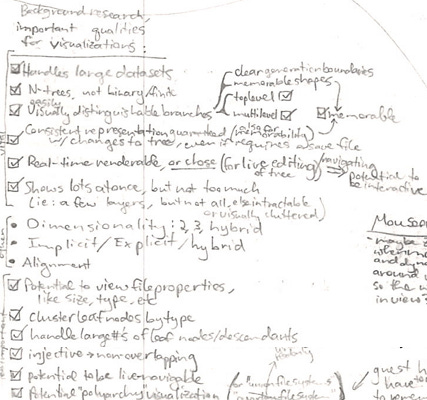 Background research,
important qualities
for visualizations:
Handles large datasets
N-trees, not binary/finite
easily
Visually distinguishable branches
clear generation boundaries
memorable shapes
top level
multilevel
memorable
Consistent representation guaranteed (also for memorability)
w/ changes to tree, even if requires a save file
Real-time renderable, or close (for live editing)
of tree
navigating
potential to
be interactive
Shows lots at once, but not too much
(ie: a few layers, but not all, else intractable
or visually cluttered)
other
• Dimensionality: 2, 3, hybrid
• Implicit/Explicit/hybrid
• Alignment
Potential to view file properties,
like size, type, etc
cluster leaf nodes by type
handle large #'s of leaf nodes/descendants
injective → non overlapping
potential to be live-navigable
Potential "polyarchy" visualization
for "union file systems"
maybe
and dy
around
so the
in view
guest h
have t